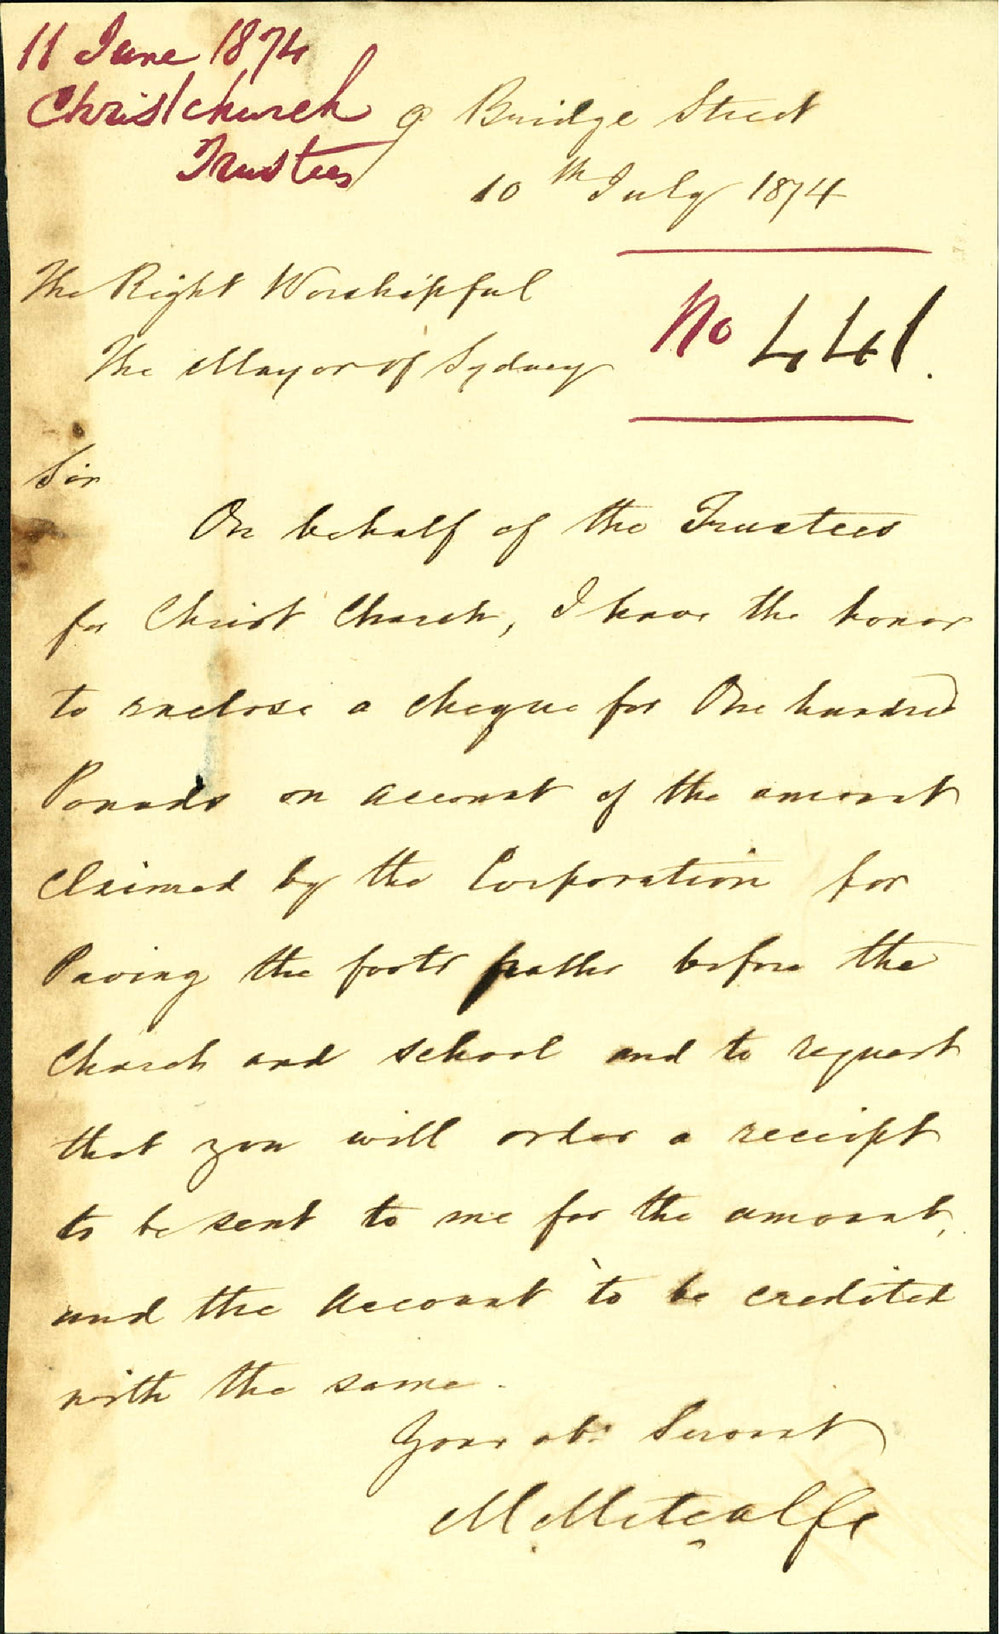 11 June 1874
Christchurch
Trustees
9 Bridge Street
10th July 1874
The Right Worshipful
The Mayor of Sydney
No 441.
Sir
On behalf of the Trustees
for Christ Church, I have the honor
to enclose a cheque for One hundred
Pounds on account of the amount
claimed by the Corporation for
Paving the foot paths before the
Church and School and to request
that you will order a receipt
to be sent to me for the amount,
and the Account to be credited
with the same.
Your obt Servant
M. Metcalfe